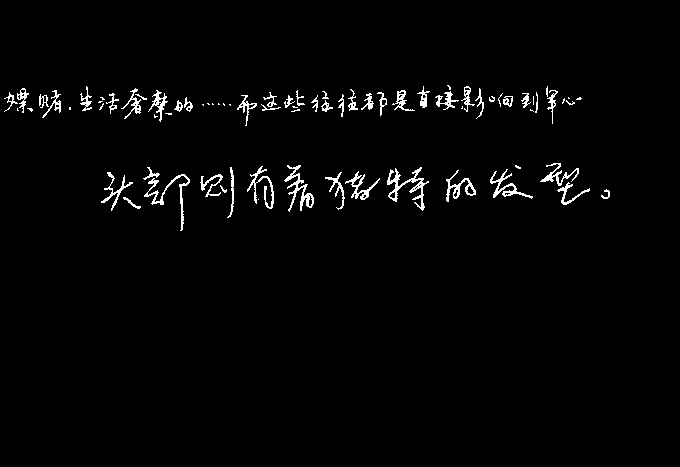 嫖赌、生活奢糜的……而这些往往都是直接影响到军心
头部则有着猪特的发型。